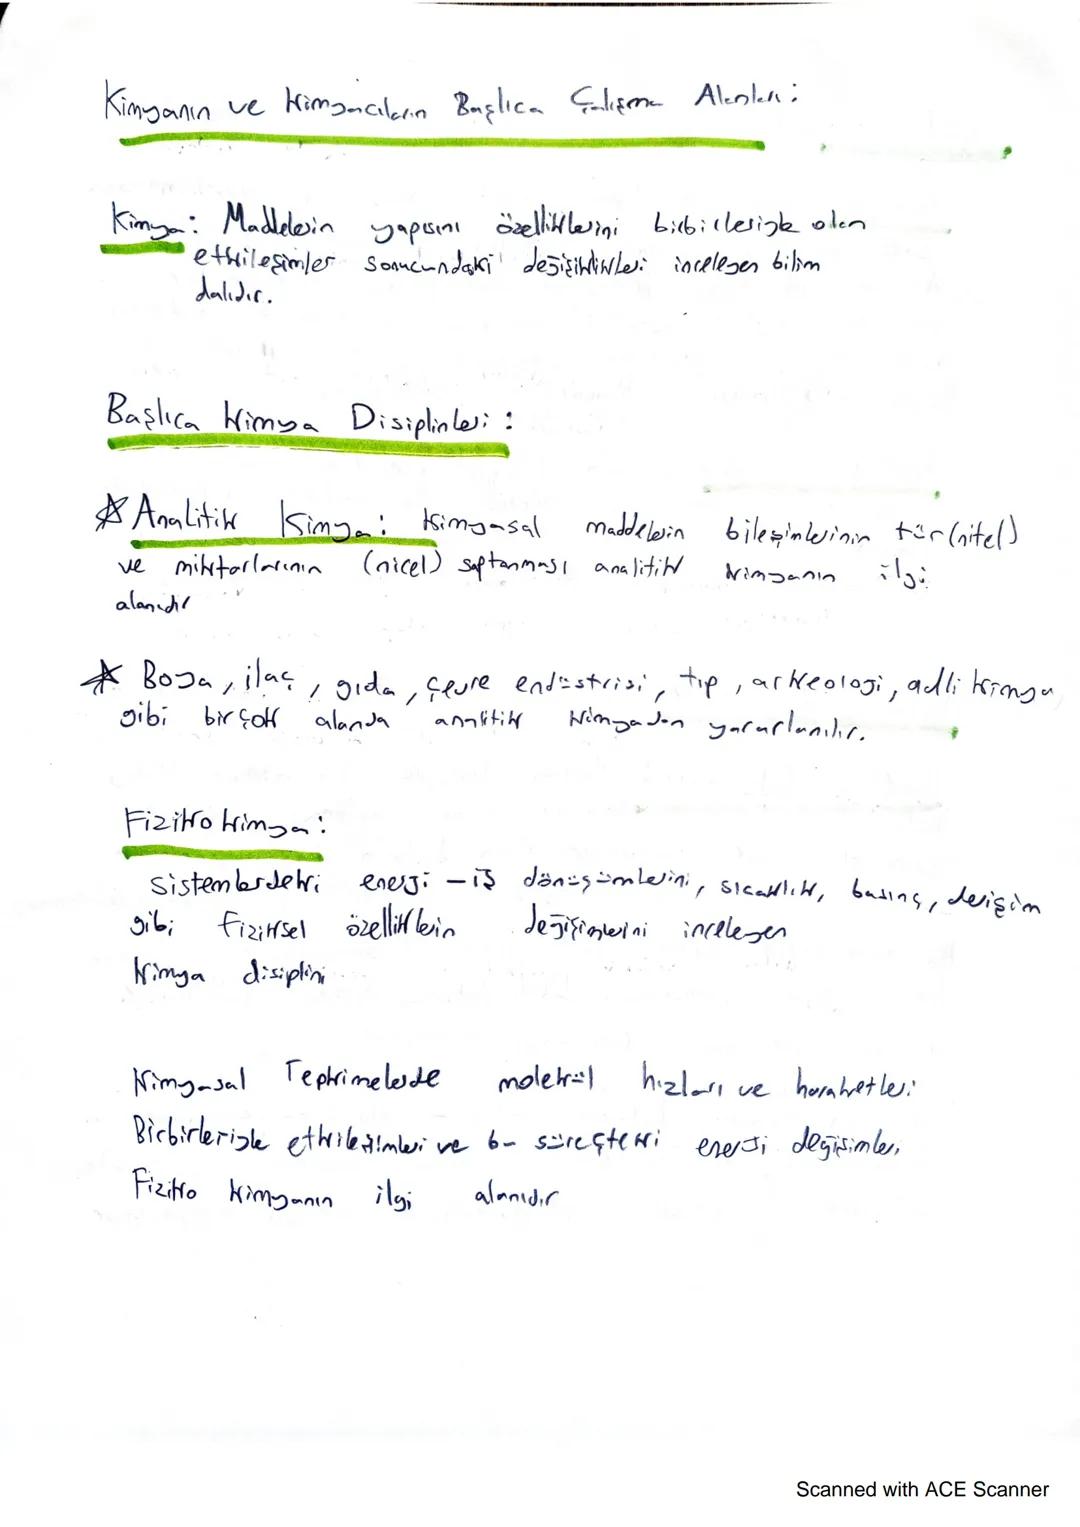 Kimyanın ve Kimyacıların Başlıca Çalışma Alanları:
Kimya: Maddelerin yapısını özelliklerini birbirleriyle olan
etkileşimler sonucundaki değişiklikleri inceleyen bilim
dalıdır.
Başlıca Kimya Disiplinleri:
Analitik Kimya: Kimyasal maddelerin bileşimlerinin tür(nitel)
ve miktarlarının (nicel) saptanması analitik kimyanın ilgi
alanıdır
Boya, ilaç, gıda, çevre endüstrisi, tıp, arkeoloji, adli kimya,
gibi bir çok alanda analitik kimyadan yararlanılır.
Fiziko kimya:
Sistemlerdeki enerji - iş dönüşümlerini, sıcaklık, basınç, derişim
gibi fiziksel özelliklerin değişimlerini inceleyen
kimya disiplini
Kimyasal Tepkimelerde molekül hızları ve harahetleri
Birbirleriyle etkileşimleri ve bu süreçteki enerji değişimleri
Fiziko kimyanın ilgi alanıdır
Scanned with ACE Scanner